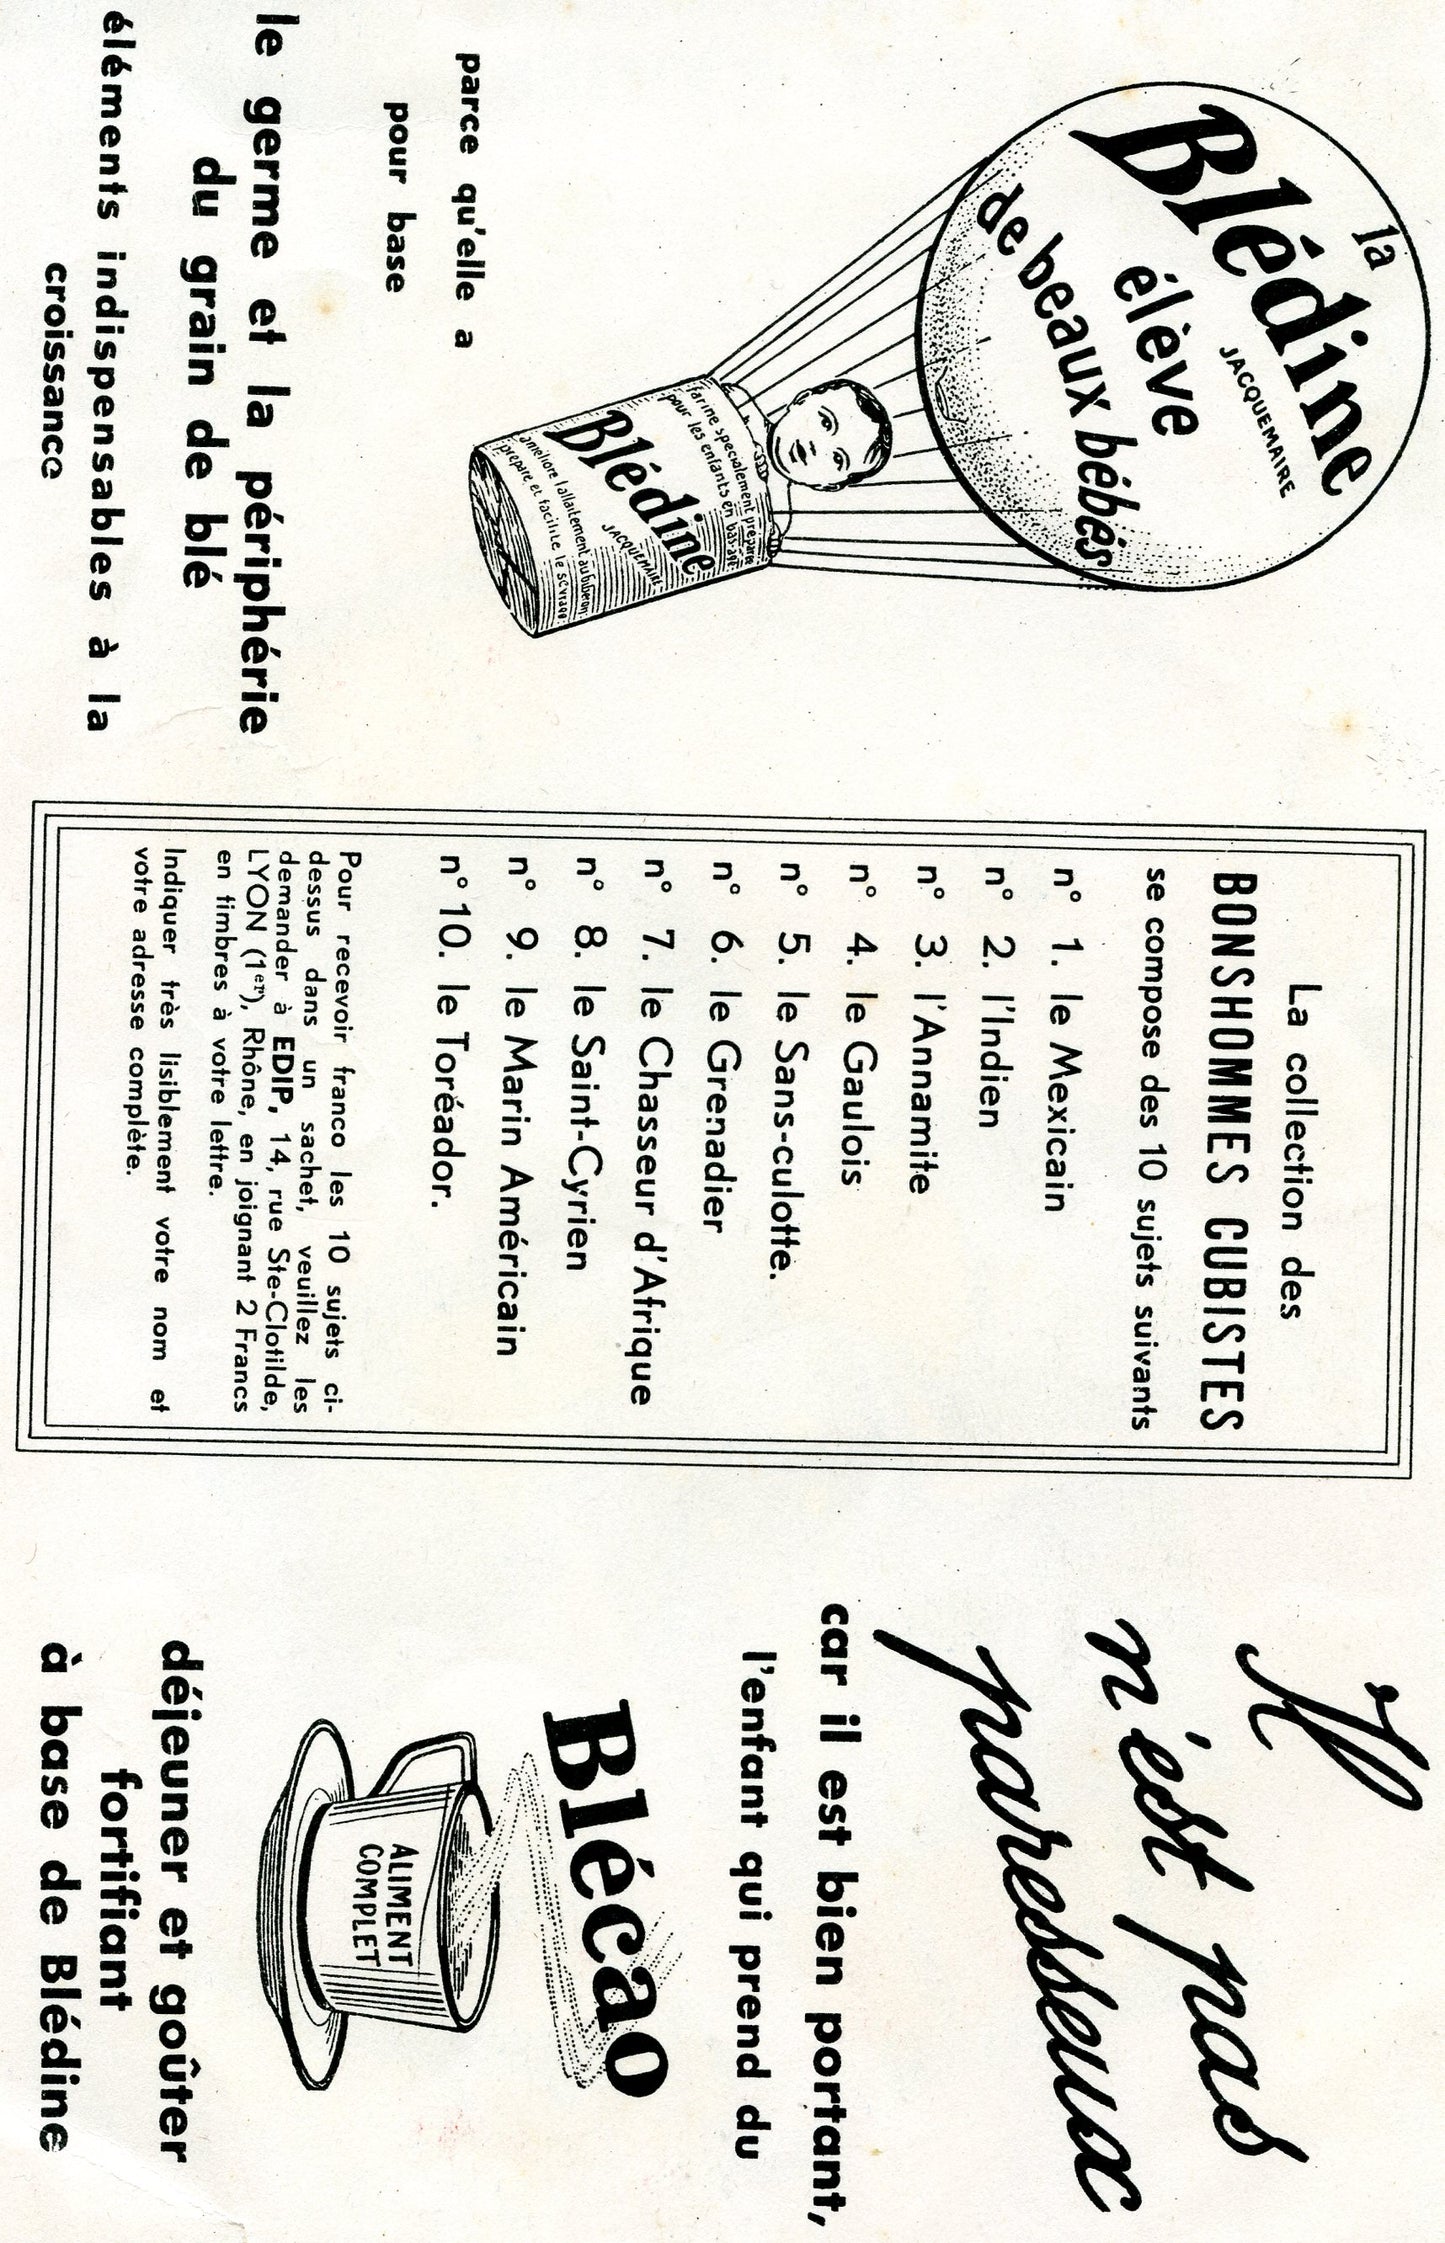 la
Blédine
JACQUEMAIRE
élève
de beaux bébés
farine specialement préparée
pour les enfants en bas-age
Blédine
JACQUEMAIRE
améliore l'allaitement au biberon
prépare et facilite le sevrage.
parce qu'elle a
pour base
le germe et la périphérie
du grain de blé
éléments indispensables à la
croissance
La collection des
BONSHOMMES CUBISTES
se compose des 10 sujets suivants
n° 1. le Mexicain
n° 2. l'Indien
n° 3. l'Annamite
n° 4. le Gaulois
n° 5. le Sans-culotte.
n° 6. le Grenadier
n° 7. le Chasseur d'Afrique
n° 8. le Saint-Cyrien
n° 9. le Marin Américain
n° 10. le Toréador.
Pour recevoir franco les 10 sujets ci-
dessus dans un sachet, veuillez les
demander à EDIP, 14, rue Ste-Clotilde,
LYON (1er), Rhône, en joignant 2 Francs
en timbres à votre lettre.
Indiquer très lisiblement votre nom et
votre adresse complète.
Il
n'est pas
paresseux
car il est bien portant,
l'enfant qui prend du
Blécao
ALIMENT
COMPLET
déjeuner et goûter
fortifiant
à base de Blédine